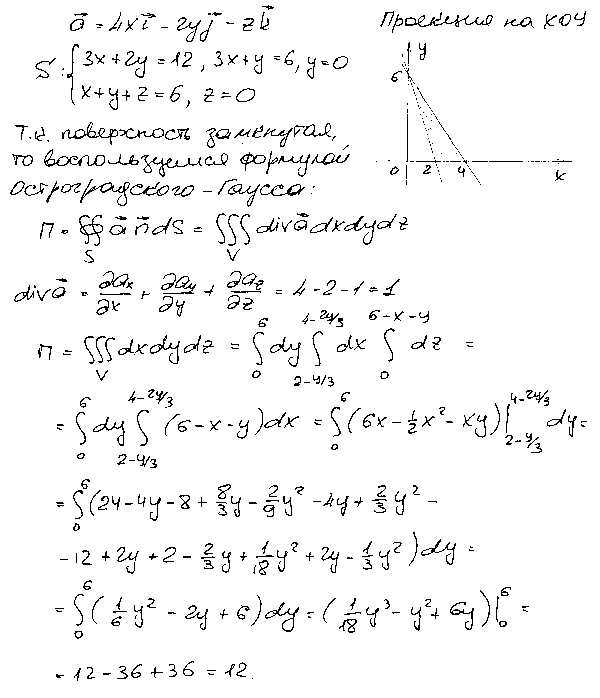 a⃗ = 4xi⃗ - 2yj⃗ - zk⃗
Проекция на XOY
S: { 3x+2y=12, 3x+y=6, y=0
x+y+z=6, z=0
y
6
0 2 4 x
Т.к. поверхность замкнутая,
то воспользуемся формулой
Остроградского-Гаусса:
П = ∯_S a⃗ n⃗ dS = ∭_V div a⃗ dxdydz
div a⃗ = ∂ax/∂x + ∂ay/∂y + ∂az/∂z = 4-2-1=1
П = ∭_V dxdydz = ∫_0^6 dy ∫_{2-y/3}^{4-2y/3} dx ∫_0^{6-x-y} dz =
= ∫_0^6 dy ∫_{2-y/3}^{4-2y/3} (6-x-y)dx = ∫_0^6 (6x - 1/2 x² - xy)|_{2-y/3}^{4-2y/3} dy =
= ∫_0^6 (24-4y-8+8/3 y - 2/9 y² - 4y + 2/3 y² -
-12+2y+2-2/3 y + 1/18 y² + 2y - 1/3 y²) dy =
= ∫_0^6 (1/6 y² - 2y + 6) dy = (1/18 y³ - y² + 6y)|_0^6 =
= 12-36+36 = 12.